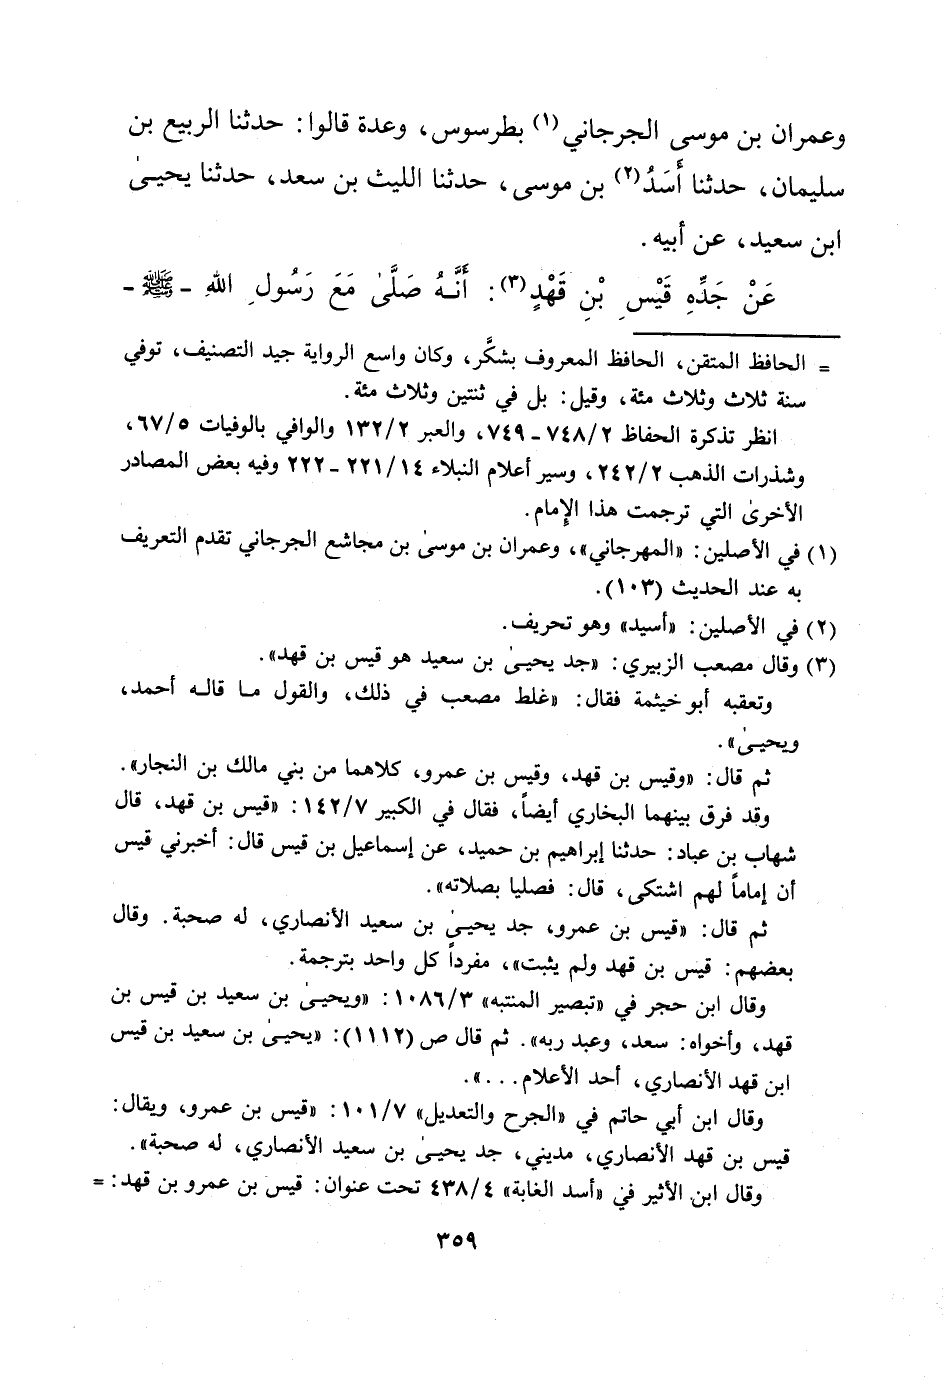 وعمران بن موسى الجرجاني(١) بطرسوس، وعدة قالوا: حدثنا الربيع بن
سليمان، حدثنا أَسَدُ(٢) بن موسى، حدثنا الليث بن سعد، حدثنا يحيىٰ
ابن سعيد، عن أبيه.
عَنْ جَدِّهِ قَيْسِ بْنِ قَهْدٍ(٣): أَنَّهُ صَلَّىٰ مَعَ رَسُولِ اللهِ - ﷺ -
= الحافظ المتقن، الحافظ المعروف بشكَّر، وكان واسع الرواية جيد التصنيف، توفي
سنة ثلاث وثلاث مئة، وقيل: بل في ثنتين وثلاث مئة.
انظر تذكرة الحفاظ ٧٤٨/٢ - ٧٤٩، والعبر ١٣٢/٢ والوافي بالوفيات ٦٧/٥،
وشذرات الذهب ٢٤٢/٢، وسير أعلام النبلاء ٢٢١/١٤ - ٢٢٢ وفيه بعض المصادر
الأخرىٰ التي ترجمت هذا الإمام.
(١) في الأصلين: «المهرجاني»، وعمران بن موسىٰ بن مجاشع الجرجاني تقدم التعريف
به عند الحديث (١٠٣).
(٢) في الأصلين: «أسيد» وهو تحريف.
(٣) وقال مصعب الزبيري: «جد يحيىٰ بن سعيد هو قيس بن قهد».
وتعقبه أبو خيثمة فقال: «غلط مصعب في ذلك، والقول ما قاله أحمد،
ويحيىٰ».
ثم قال: «وقيس بن قهد، وقيس بن عمرو، كلاهما من بني مالك بن النجار».
وقد فرق بينهما البخاري أيضاً، فقال في الكبير ١٤٢/٧: «قيس بن قهد، قال
شهاب بن عباد: حدثنا إبراهيم بن حميد، عن إسماعيل بن قيس قال: أخبرني قيس
أن إماماً لهم اشتكى، قال: فصليا بصلاته».
ثم قال: «قيس بن عمرو، جد يحيىٰ بن سعيد الأنصاري، له صحبة. وقال
بعضهم: قيس بن قهد ولم يثبت»، مفرداً كل واحد بترجمة.
وقال ابن حجر في «تبصير المنتبه» ١٠٨٦/٣: «ويحيىٰ بن سعيد بن قيس بن
قهد، وأخواه: سعد، وعبد ربه». ثم قال ص (١١١٢): «يحيىٰ بن سعيد بن قيس
ابن قهد الأنصاري، أحد الأعلام...».
وقال ابن أبي حاتم في «الجرح والتعديل» ١٠١/٧: «قيس بن عمرو، ويقال:
قيس بن قهد الأنصاري، مديني، جد يحيىٰ بن سعيد الأنصاري، له صحبة».
وقال ابن الأثير في «أسد الغابة» ٤٣٨/٤ تحت عنوان: قيس بن عمرو بن قهد: =
٣٥٩